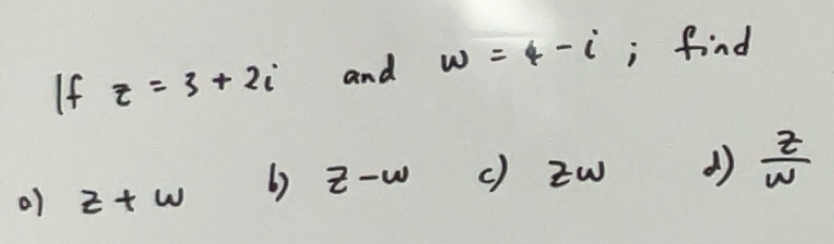 If z = 3 + 2i and w = 4 - i ; find
a) z + w b) z - w c) zw d) z/w